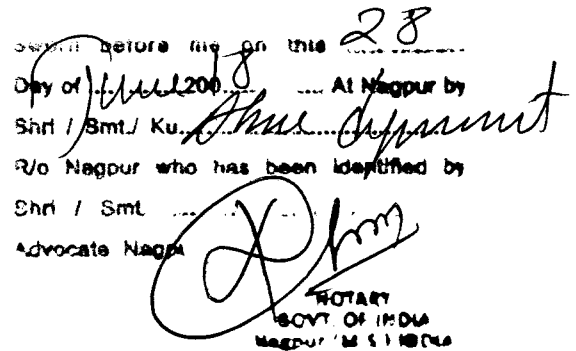 Sworn before me on this 28
Day of June 2008 At Nagpur by
Shri / Smt./ Ku. above deponent
R/o Nagpur who has been identified by
Shri / Smt.
Advocate Nagpur
NOTARY
GOVT. OF INDIA
Nagpur (M.S.) INDIA